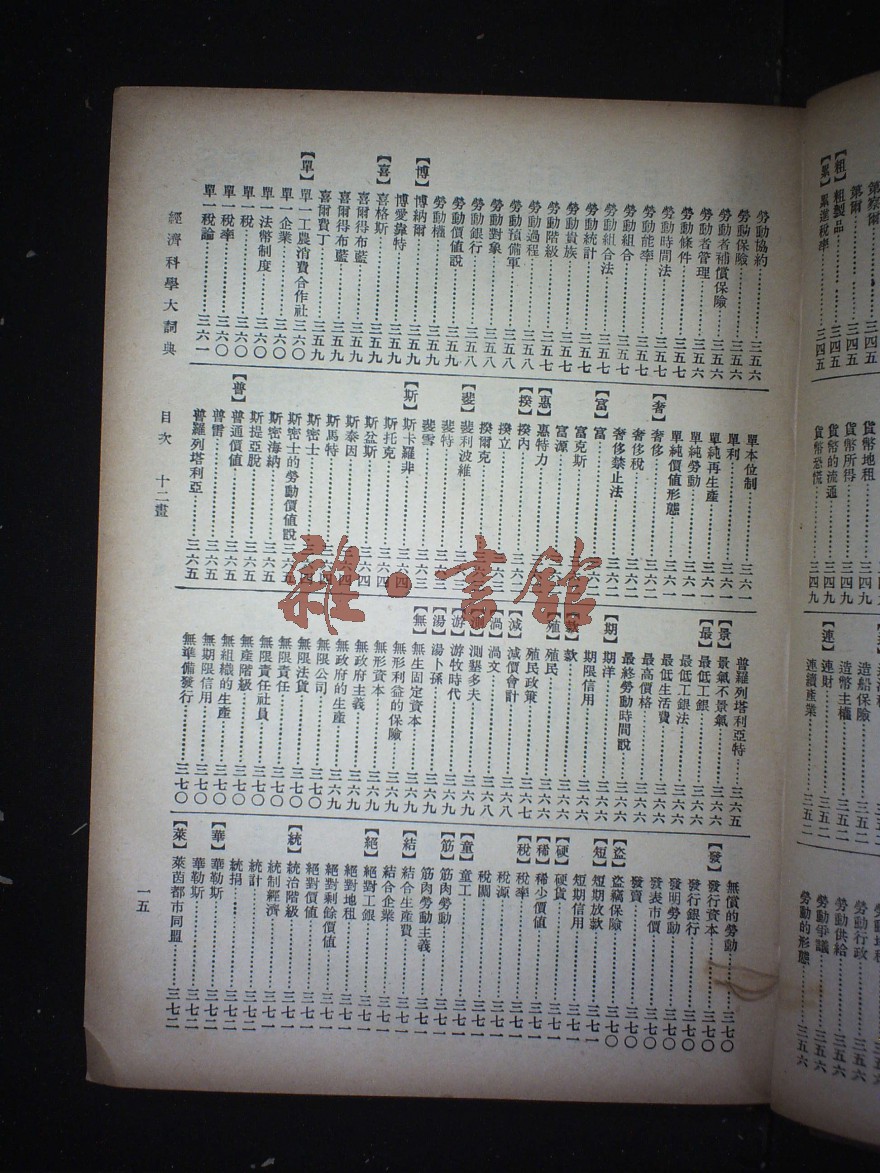 勞動協約…………三五六
勞動保險…………三五六
勞動者補償保險…………三五六
勞動者管理…………三五六
勞動條件…………三五七
勞動時間法…………三五七
勞動能率…………三五七
勞動組合…………三五七
勞動組合法…………三五七
勞動統計…………三五七
勞動貴族…………三五七
勞動階級…………三五七
勞動過程…………三五八
勞動預備軍…………三五八
勞動對象…………三五八
勞動銀行…………三五八
勞動價值說…………三五八
勞動權…………三五九
【博】博納爾…………三五九
博愛韋特…………三五九
【喜】喜格斯…………三五九
喜爾得布藍…………三五九
喜爾得布藍…………三五九
喜爾費丁…………三五九
【單】單一工農消費合作社…………三六〇
單一企業…………三六〇
單一法幣制度…………三六〇
單一稅…………三六〇
單一稅率…………三六〇
單一稅論…………三六一
單本位制…………三六一
單利…………三六一
單純再生產…………三六一
單純勞動…………三六一
單純價值形態…………三六一
【奢】奢侈…………三六二
奢侈稅…………三六二
奢侈禁止法…………三六二
【富】富
富克斯
富源
【惠】惠特力
【揆】揆內
揆立
揆爾克
【斐】斐利波維
斐特
斐雪…………三六三
【斯】斯卡羅非
斯托克
斯盆斯
斯泰因
斯馬特
斯密士
斯密士的勞動價值說…………三六五
斯密海納…………三六五
斯提亞脫…………三六五
【普】普通價值…………三六五
普雷…………三六五
普羅列塔利亞…………三六五
普羅列塔利亞特…………三六五
【景】景氣不景氣…………三六六
【最】最低工銀…………三六六
最低工銀法…………三六六
最低生活費…………三六六
最高價格…………三六六
最終勞動時間說…………三六六
【期】期洋…………三六六
期限信用…………三六六
款…………三六六
【殖】殖民…………三六六
殖民政策…………三六七
【減】減價會計…………三六八
【渦】渦文…………三六八
測墾多夫…………三六九
【游】游牧時代…………三六九
【湯】湯卜孫…………三六九
【無】無生固定資本…………三六九
無形利益的保險…………三六九
無形資本…………三六九
無政府主義…………三六九
無政府的生產…………三六九
無限公司…………三七〇
無限法貨…………三七〇
無限責任…………三七〇
無限責任社員…………三七〇
無產階級…………三七〇
無組織的生產…………三七〇
無期限信用…………三七〇
無準備發行…………三七〇
無償的勞動…………三七〇
【發】發行資本…………三七〇
發行銀行…………三七〇
發明勞動…………三七〇
發表市價…………三七〇
發賣…………三七〇
【盜】盜竊保險…………三七〇
【短】短期放款…………三七一
短期信用…………三七一
【硬】硬貨…………三七一
【稀】稀少價值…………三七一
【稅】稅率…………三七一
稅源…………三七一
稅關…………三七一
【童】童工…………三七一
【筋】筋肉勞動…………三七一
筋肉勞動主義…………三七一
【結】結合生產費…………三七一
結合企業…………三七一
【絕】絕對工銀…………三七一
絕對地租…………三七一
絕對剩餘價值…………三七一
絕對價值…………三七一
【統】統治階級…………三七一
統制經濟…………三七二
統計…………三七二
統捐…………三七二
【華】華勒斯…………三七二
華勒斯…………三七二
【萊】萊茵都市同盟…………三七二
經濟科學大詞典 目次 十二畫 一五
第察爾…………三四五
第爾…………三四五
【粗】粗製品…………三四五
【累】累進稅率…………三四五
貨幣地租…………三四九
貨幣所得…………三四九
貨幣的流通…………三四九
貨幣恐慌…………三四九
造船保險…………三五二
造幣主權…………三五二
【連】連財…………三五二
連續產業…………三五二
勞動行政…………三五六
勞動供給…………三五六
勞動爭議…………三五六
勞動的形態…………三五六
雜·書館